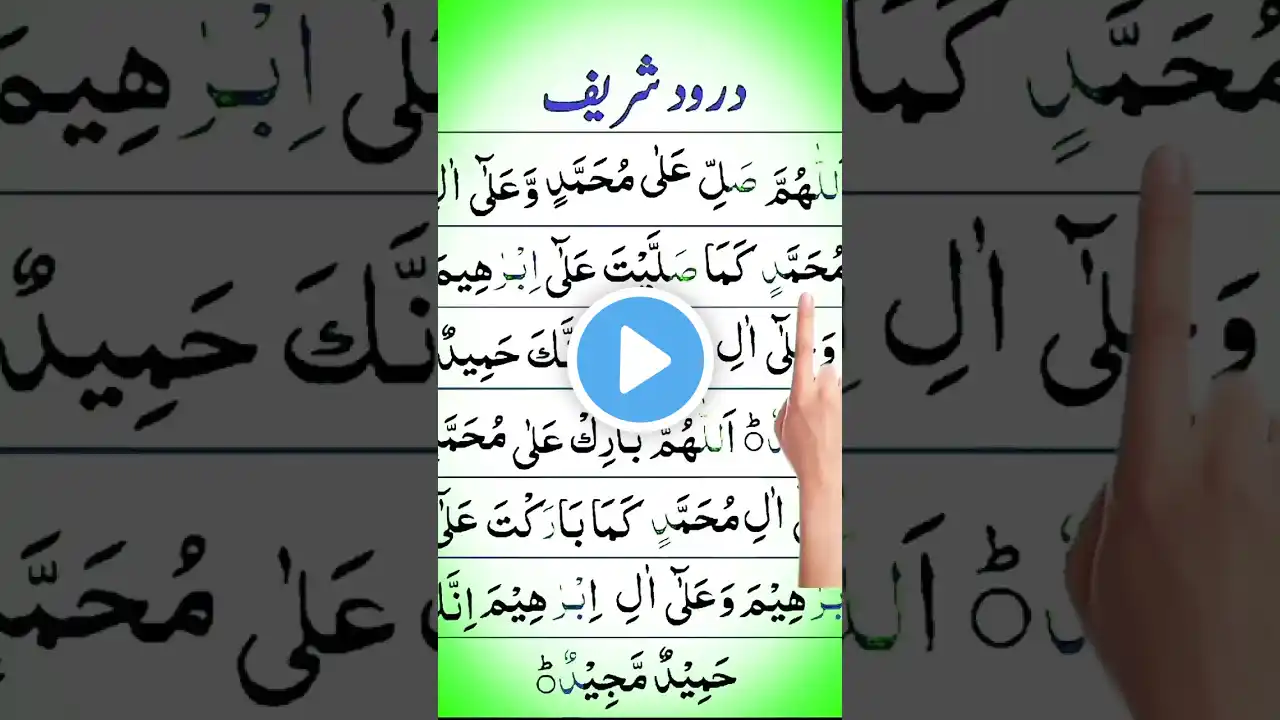 درود شریف
اَللّٰهُمَّ صَلِّ عَلٰی مُحَمَّدٍ وَّعَلٰٓی اٰلِ
مُحَمَّدٍ کَمَا صَلَّیْتَ عَلٰٓی اِبْرٰهِیمَ
وَعَلٰٓی اٰلِ نَّكَ حَمِیدٌ
اَللّٰهُمَّ بَارِكْ عَلٰی مُحَمَّدٍ
اٰلِ مُحَمَّدٍ کَمَا بَارَکْتَ عَلٰٓی
بْرٰهِیْمَ وَعَلٰٓی اٰلِ اِبْرٰهِیْمَ اِنَّكَ
حَمِیْدٌ مَّجِیْدٌؕ